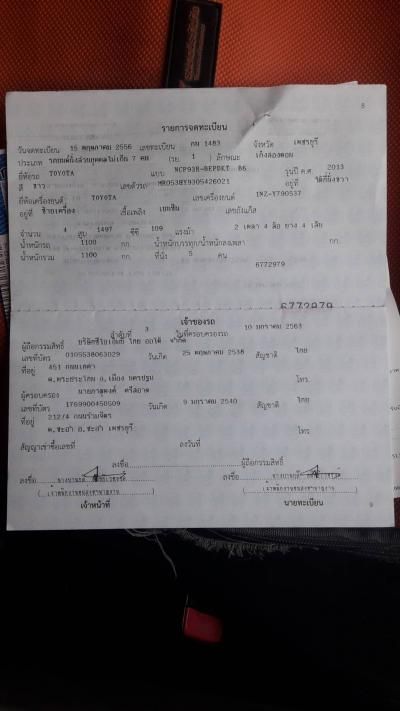 8
รายการจดทะเบียน
วันจดทะเบียน 15 พฤษภาคม 2556 เลขทะเบียน กน 1483 จังหวัด เพชรบุรี
ประเภท รถยนต์นั่งส่วนบุคคลไม่เกิน 7 คน (รย. 1 ) ลักษณะ เก๋งสองตอน
ยี่ห้อรถ TOYOTA แบบ NCP93R-BEPDKT B6 รุ่นปี ค.ศ. 2013
สี ขาว เลขตัวรถ MR053BY9305426021 อยู่ที่
ยี่ห้อเครื่องยนต์ TOYOTA เลขเครื่องยนต์ 1NZ-Y790537
อยู่ที่ ข้างเครื่อง เชื้อเพลิง เบนซิน เลขถังแก๊ส
จำนวน 4 สูบ 1497 ซีซี 109 แรงม้า 2 เพลา 4 ล้อ ยาง 4 เส้น
น้ำหนักรถ 1100 กก. น้ำหนักบรรทุก/น้ำหนักลงเพลา กก.
น้ำหนักรวม 1100 กก. ที่นั่ง 5 คน
6772979
6772979
เจ้าของรถ
ลำดับที่ 3 วันที่ครอบครองรถ 10 มกราคม 2563
ผู้ถือกรรมสิทธิ์ จำกัด
เลขที่บัตร 0105538063029 วันเกิด 25 พฤษภาคม 2538 สัญชาติ ไทย
ที่อยู่ 451
ต.พระประโทน อ.เมือง นครปฐม โทร.
ผู้ครอบครอง
เลขที่บัตร 1769900450509 วันเกิด 9 มกราคม 2540 สัญชาติ ไทย
ที่อยู่ 212/4 ถนนร่วมจิตร
ต.ชะอำ อ.ชะอำ เพชรบุรี โทร
สัญญาเช่าซื้อเลขที่ ลงวันที่
ลงชื่อ ผู้ถือกรรมสิทธิ์
ลงชื่อ ลงชื่อ
เจ้าหน้าที่ นายทะเบียน
9